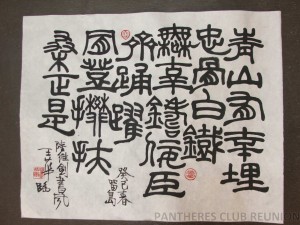 青山有幸埋
忠骨白鐵
無辜鑄佞臣
踊躍
登攀扶
桑正是
癸巳春
陸維釗書風
PANTHERES CLUB REUNI